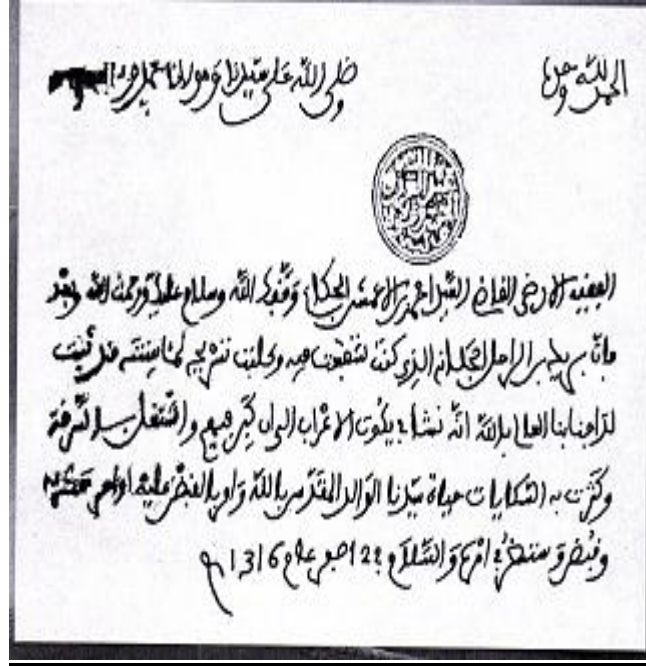 الحمد لله وحده
وصلى الله على سيدنا ومولانا محمد وءاله
الفقيه الارضى القاضي السيد احمد بن الاعمش الجكاني وفقك الله وسلام عليك ورحمة الله وبعد
فان الراحل الجكاني الذي كنت شفعت فيه وطلبت تسريحه فقد ثبت
لدى جنابنا العالي بالله انه نشا في بيوت الاعراب الى ان كبر فيهم واشتغل بالسرقة
وكثرت به الشكايات حياة سيدنا الوالد المقدس بالله وامر بالقبض عليه
وقبض وسننظر في امره والسلام في 12 صفر عام 1316